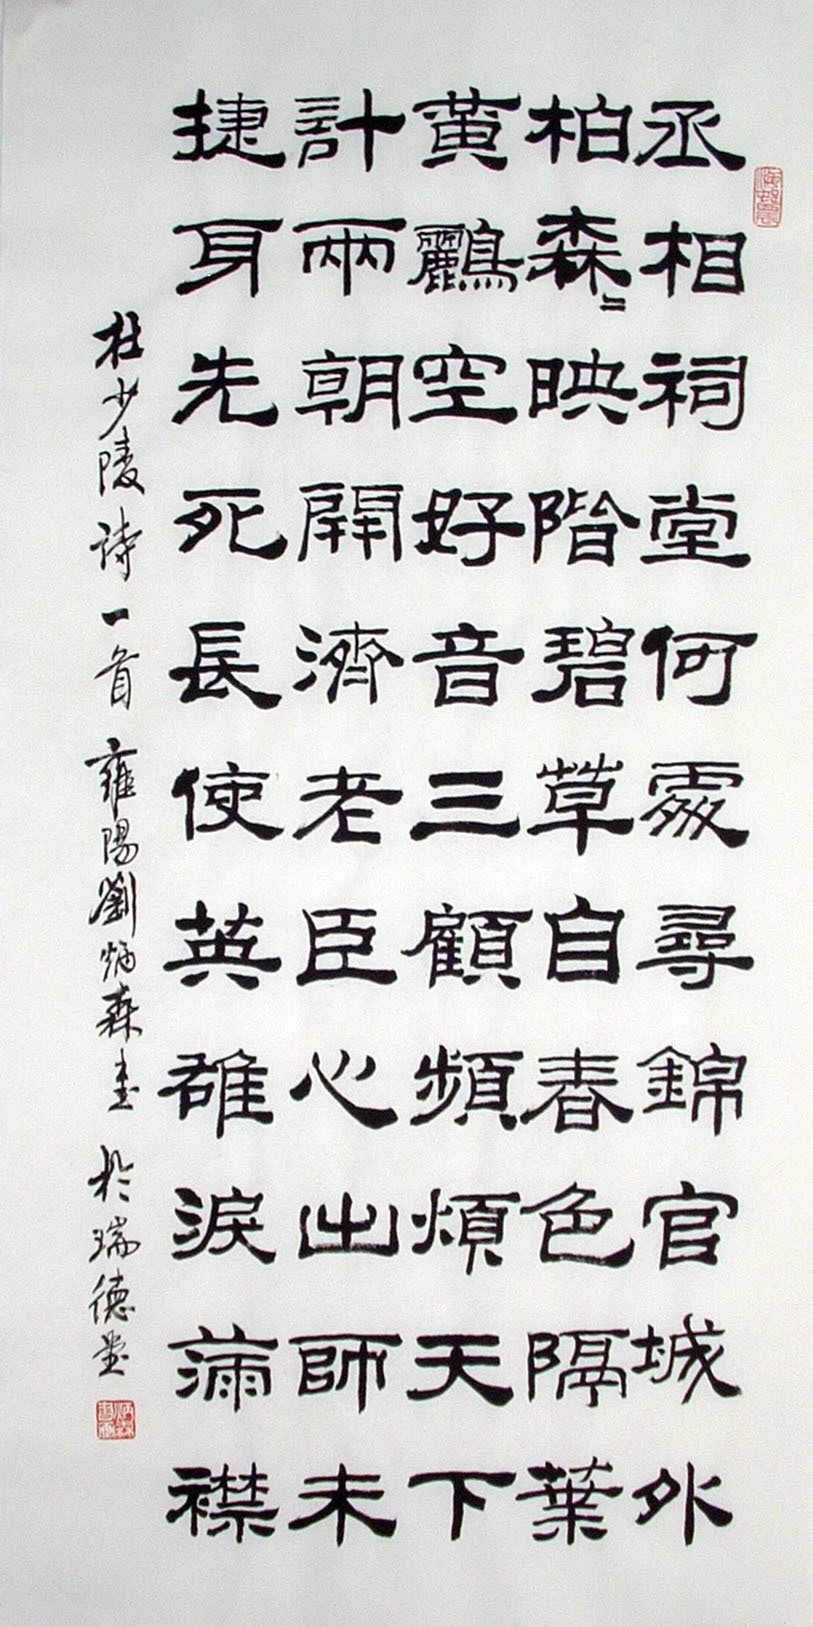 丞相祠堂何處尋錦官城外
柏森〻映階碧草自春色隔葉
黃鸝空好音三顧頻煩天下
計兩朝開濟老臣心出師未
捷身先死長使英雄淚滿襟
杜少陵詩一首 雍陽劉炳森書於瑞德堂